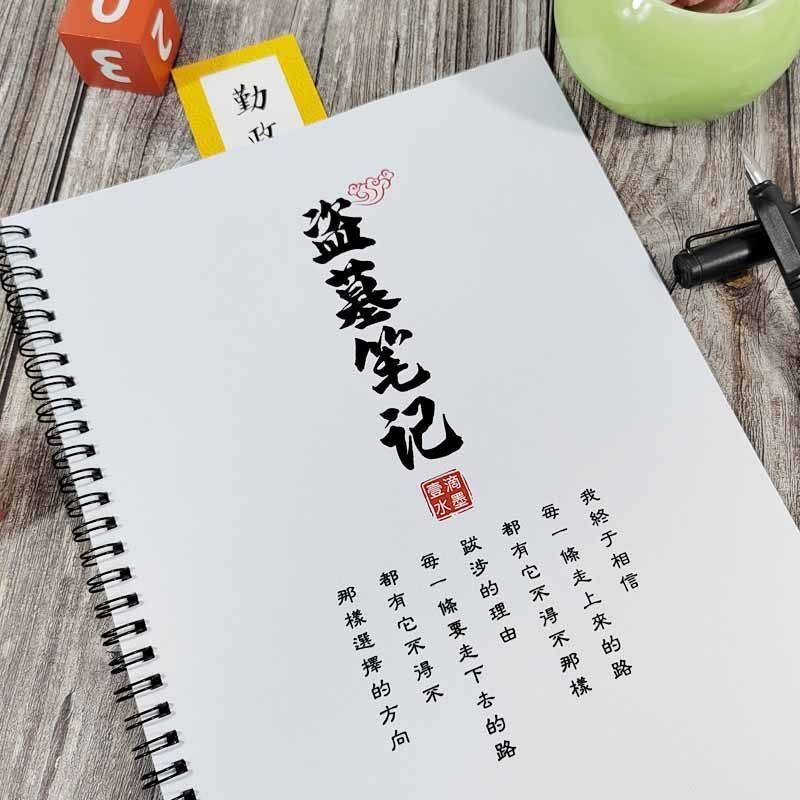 0
3
2
勤
盗墓笔记
滴墨
壹水
我終于相信
每一條走上來的路
都有它不得不那樣
跋涉的理由
每一條要走下去的路
都有它不得不
那樣選擇的方向